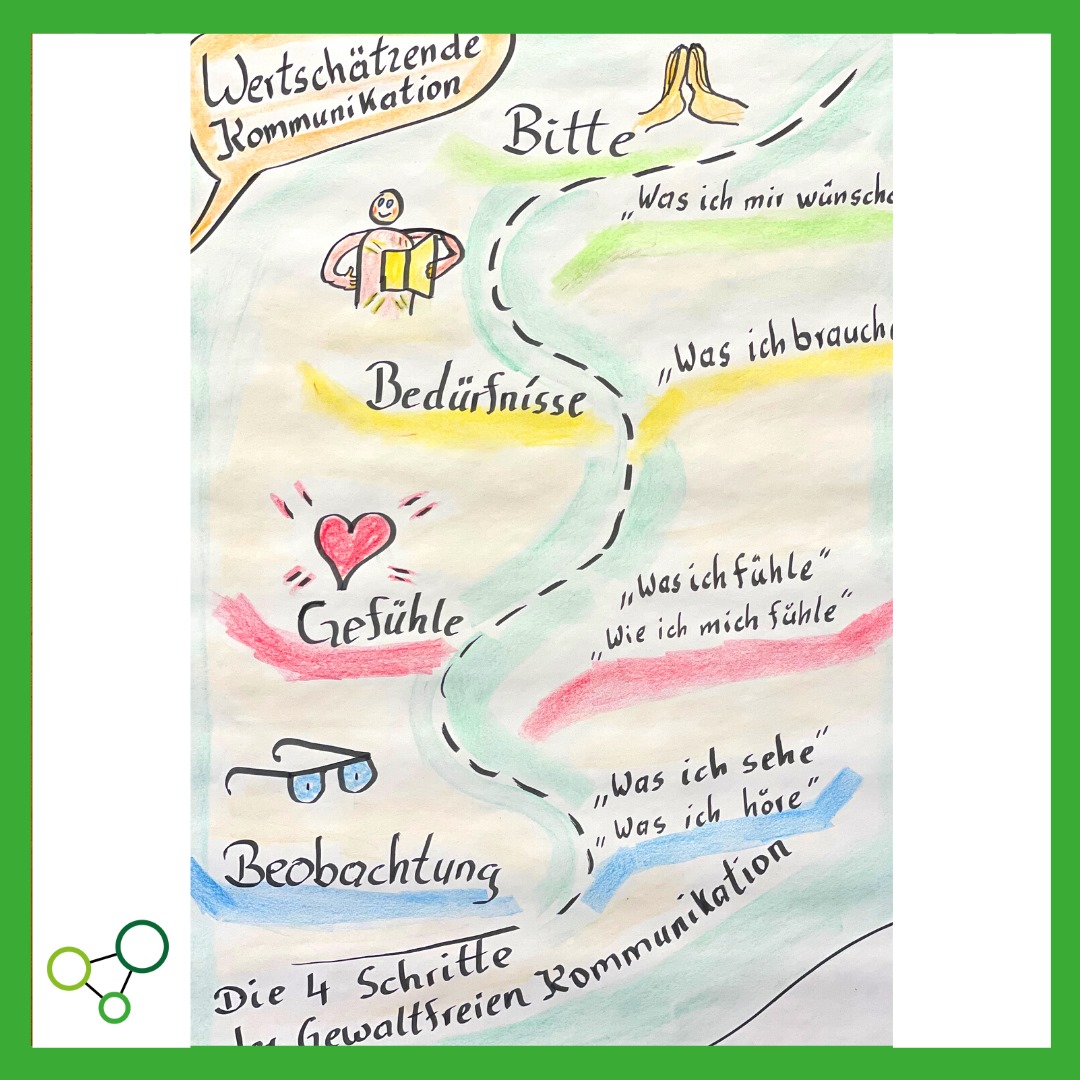 Wertschätzende
Kommunikation
Bitte
„Was ich mir wünsche
„Was ich brauche
Bedürfnisse
Gefühle
„Was ich fühle“
„Wie ich mich fühle“
„Was ich sehe“
„Was ich höre“
Beobachtung
Die 4 Schritte
der Gewaltfreien Kommunikation